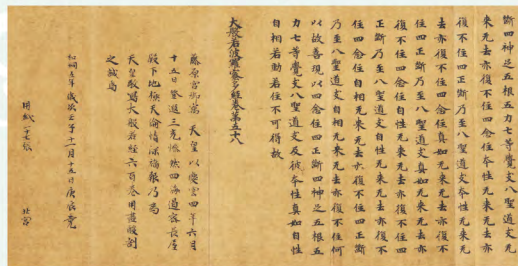 斷四神足五根五力七等覺支八聖道支无
来无去亦復不住四念住本性无来无去亦
復不住四正斷乃至八聖道支本性无来无
去亦復不住四念住真如无来无去亦復不
住四正斷乃至八聖道支真如无来无去亦
復不住四念住自性无来无去亦復不住四
正斷乃至八聖道支自性无来无去亦復不
住四念住自相无来无去亦復不住四正斷
乃至八聖道支自相无来无去亦復不住何
以故善現以四念住四正斷四神足五根五
力七等覺支八聖道支及彼本性真如自性
自相若動若住不可得故
大般若波羅蜜多經卷第五十八
藤原宮御寓 天皇以慶雲四年六月
十五日登遐三光慘然四海遏密長屋
殿下地極天倫情深福報乃為
天皇敬寫大般若經六百卷用盡酸割
之誠焉
和銅五年歲次壬子十一月十五日庚辰竟
用紙一十七張 北宮